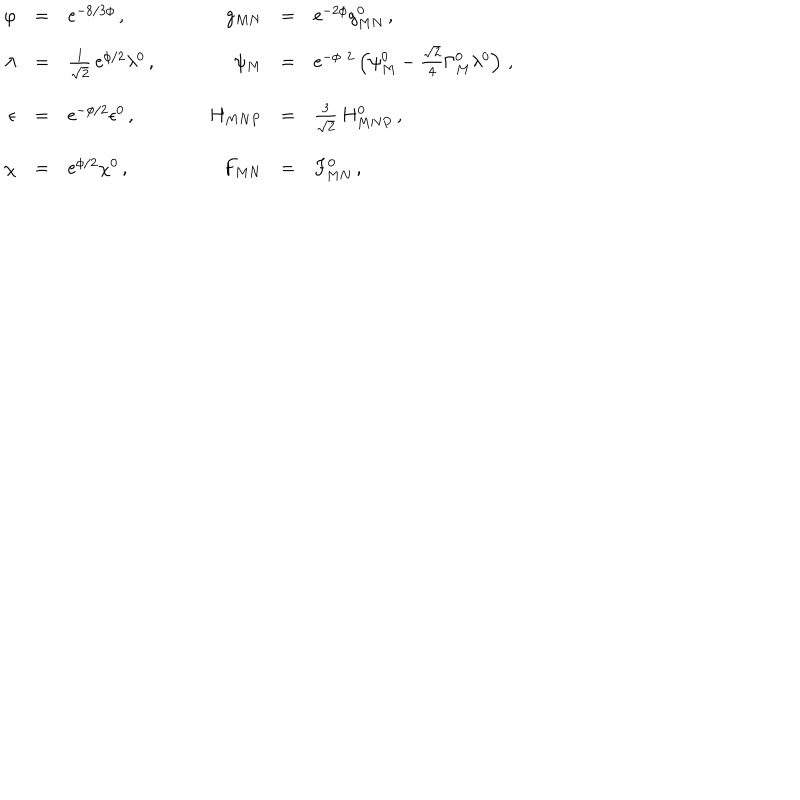 φ = e^{-8/3ϕ} , g_{MN} = e^{-2ϕ} g^0_{MN} ,
λ = \frac{1}{\sqrt{2}} e^{ϕ/2} λ^0 , ψ_M = e^{-ϕ 2} ( ψ^0_M − \frac{\sqrt{2}}{4} Γ^0_M λ^0 ) ,
ϵ = e^{-ϕ/2} ϵ^0 , H_{MNP} = \frac{3}{\sqrt{2}} H^0_{MNP} ,
χ = e^{ϕ/2} χ^0 , F_{MN} = F^0_{MN} ,